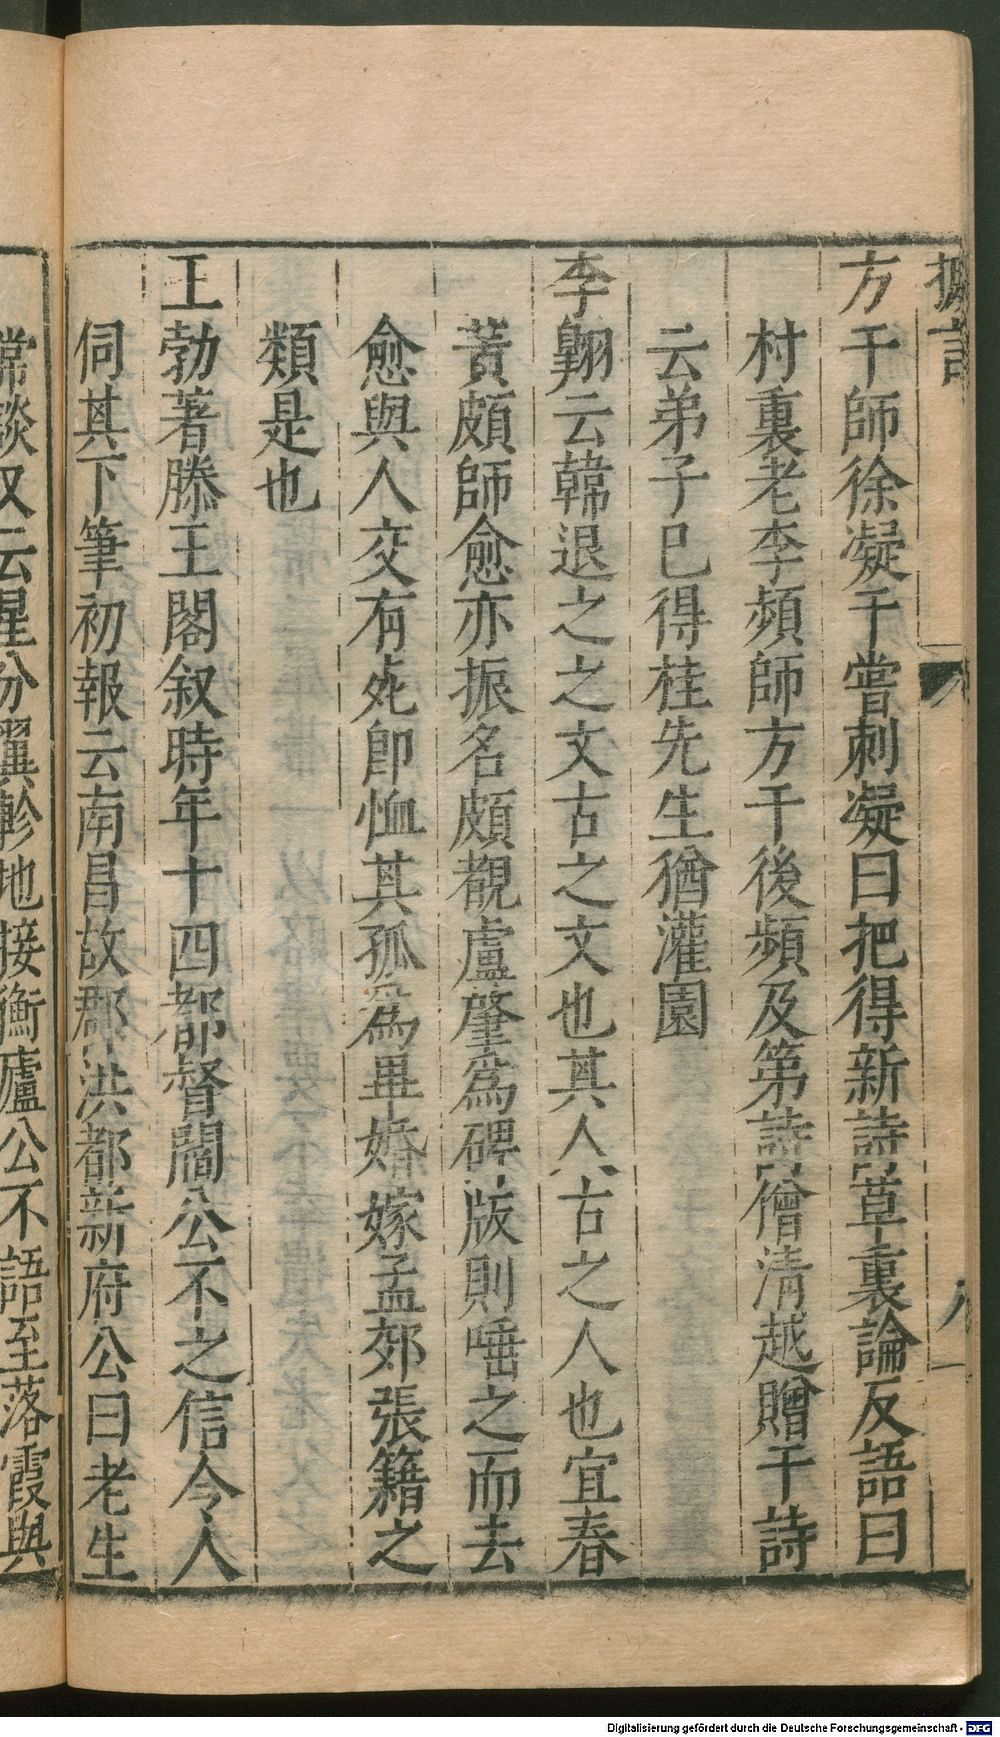 摭言
八
方干師徐凝干嘗刺凝曰把得新詩草裏論反語曰
村裏老李頻師方干後頻及第詩僧清越贈干詩
云弟子已得桂先生猶灌園
李翺云韓退之之文古之文也其人古之人也宜春
黃頗師愈亦振名頗覩盧肇爲碑版則唾之而去
愈與人交有死卽恤其孤爲畢婚嫁孟郊張籍之
類是也
王勃著滕王閣叙時年十四都督閻公不之信令人
伺其下筆初報云南昌故郡洪都新府公曰老生
常談又云星分翼軫地接衡廬公不語至落霞與
Digitalisierung gefördert durch die Deutsche Forschungsgemeinschaft - DFG